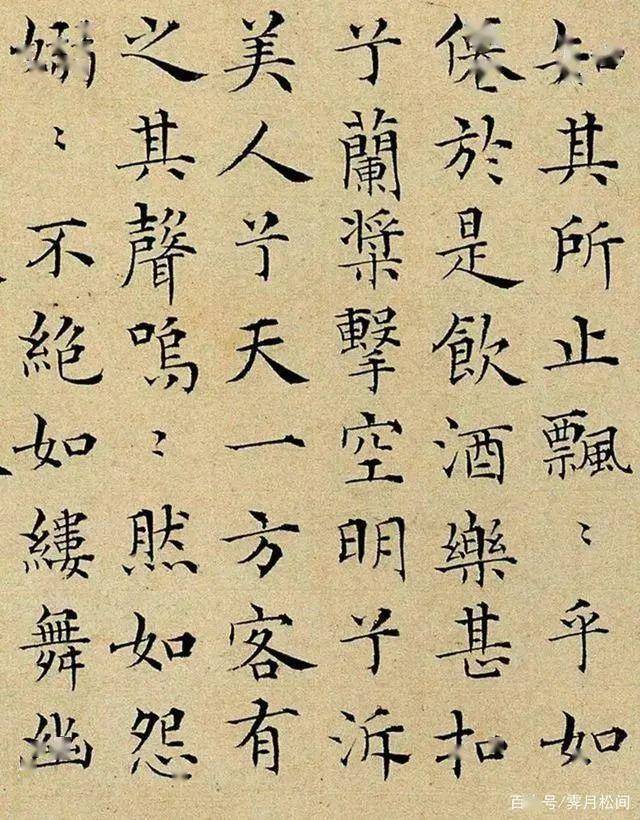 知其所止飄〻乎如
僊於是飲酒樂甚扣
兮蘭槳擊空明兮泝
美人兮天一方客有
之其聲嗚〻然如怨
嫋〻不絕如縷舞幽
百号/霁月松间